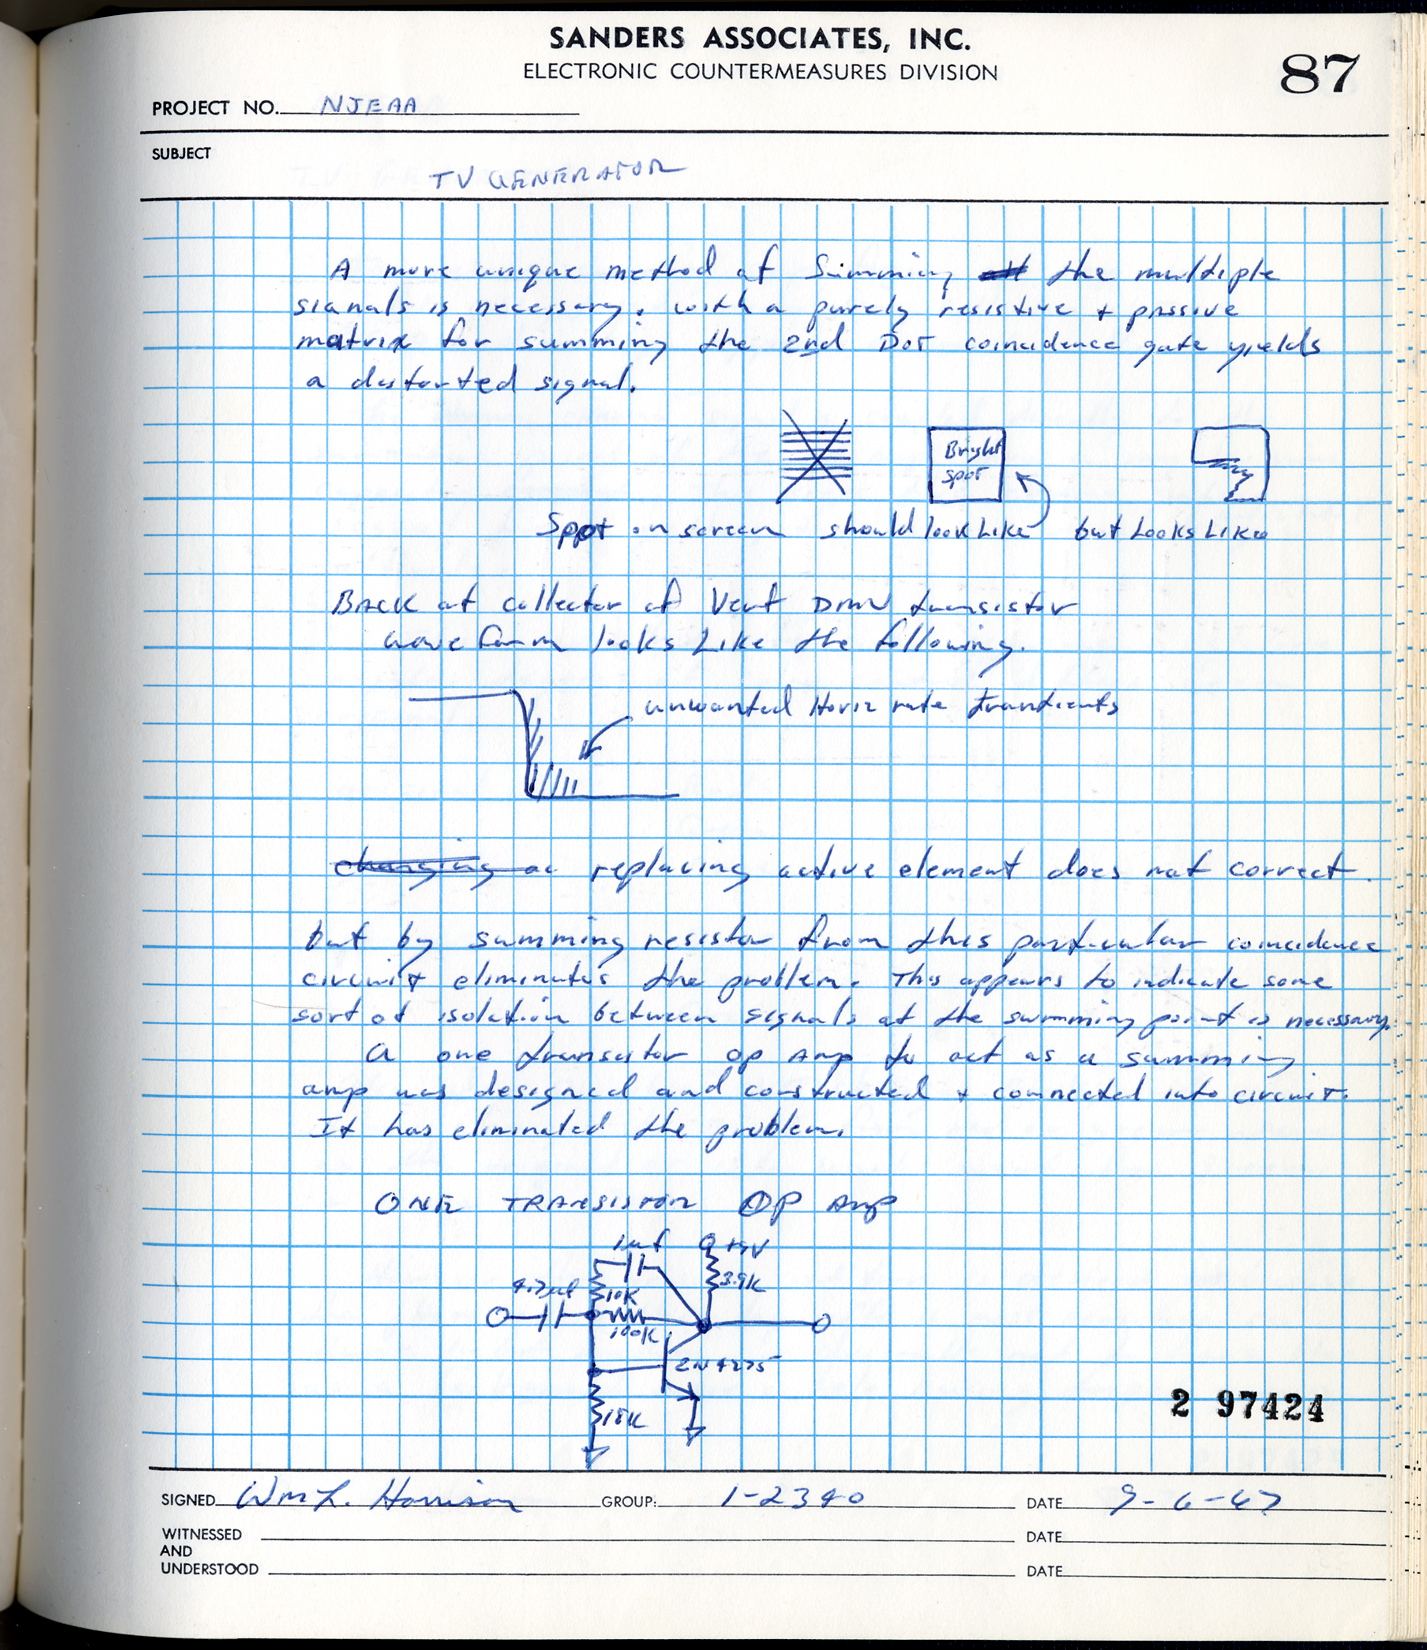 SANDERS ASSOCIATES, INC.
ELECTRONIC COUNTERMEASURES DIVISION
87
PROJECT NO. NJEAA
SUBJECT
TV GENERATOR
A more unique method of Summing the multiple
signals is necessary. with a purely resistive + passive
matrix for summing the 2nd DOT coincidence gate yields
a distorted signal.
Bright
spot
Spot on screen should look Like but Looks Like
BACK at collector of Vert DMV transistor
wave form looks Like the following.
unwanted Horiz rate transients
changing or replacing active element does not correct.
but by summing resistor from this particular coincidence
circuit eliminates the problem. This appears to indicate some
sort of isolation between signals at the summing point is necessary.
A one transistor op Amp to act as a summing
amp was designed and constructed + connected into circuit.
It has eliminated the problem.
ONE TRANSISTOR OP Amp
1uf +9V
4.7uf 10K 3.9K
100K
2N4275
18K
2 97424
SIGNED Wm L. Harrison GROUP: 1-2340 DATE 9-6-67
WITNESSED DATE
AND
UNDERSTOOD DATE